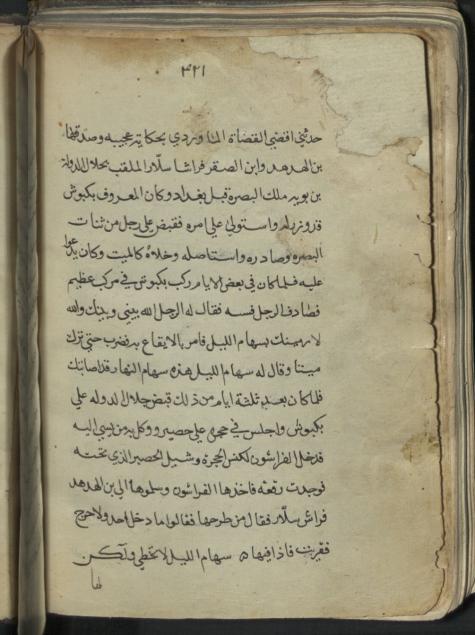 ٣٢١
حدثني اقضي القضاة الماوردي بحكاية عجيبه وصدقها
بن الهدهد وابن الصقر فراشا سلار الملقب بجلال الدولة
بن بويه ملك البصره قبل بغداد وكان المعروف بكبوش
قد وزر له واستولي علي امره فقبض علي رجل من ثنات
البصره وصادره واستاصله وخلاه كالميت وكان يدعوا
عليه فلما كان في بعض الايام ركب بكبوش في مركب عظيم
فصادف الرجل فسبه فقال له الرجل الله بيني وبينك والله
لارمينك بسهام الليل فامر بالايقاع به فضرب حتي ترك
ميتا وقال له سهام الليل هذه سهام النهار قد اصابتك
فلما كان بعد ثلثة ايام من ذلك قبض جلال الدوله علي
بكبوش واجلس في حجرة علي حصير ووكل به من يسي اليه
فدخل الفراشون لكنس الحجرة وشيل الحصير الذي تحته
فوجدت رقعة فاخذها الفراشون وسلموها الي بن الهدهد
فراش سلار فقال من طرحها فقالوا ما دخل احد ولا خرج
فقريت فاذا فيها ه سهام الليل لا تخطي ولكن
لها